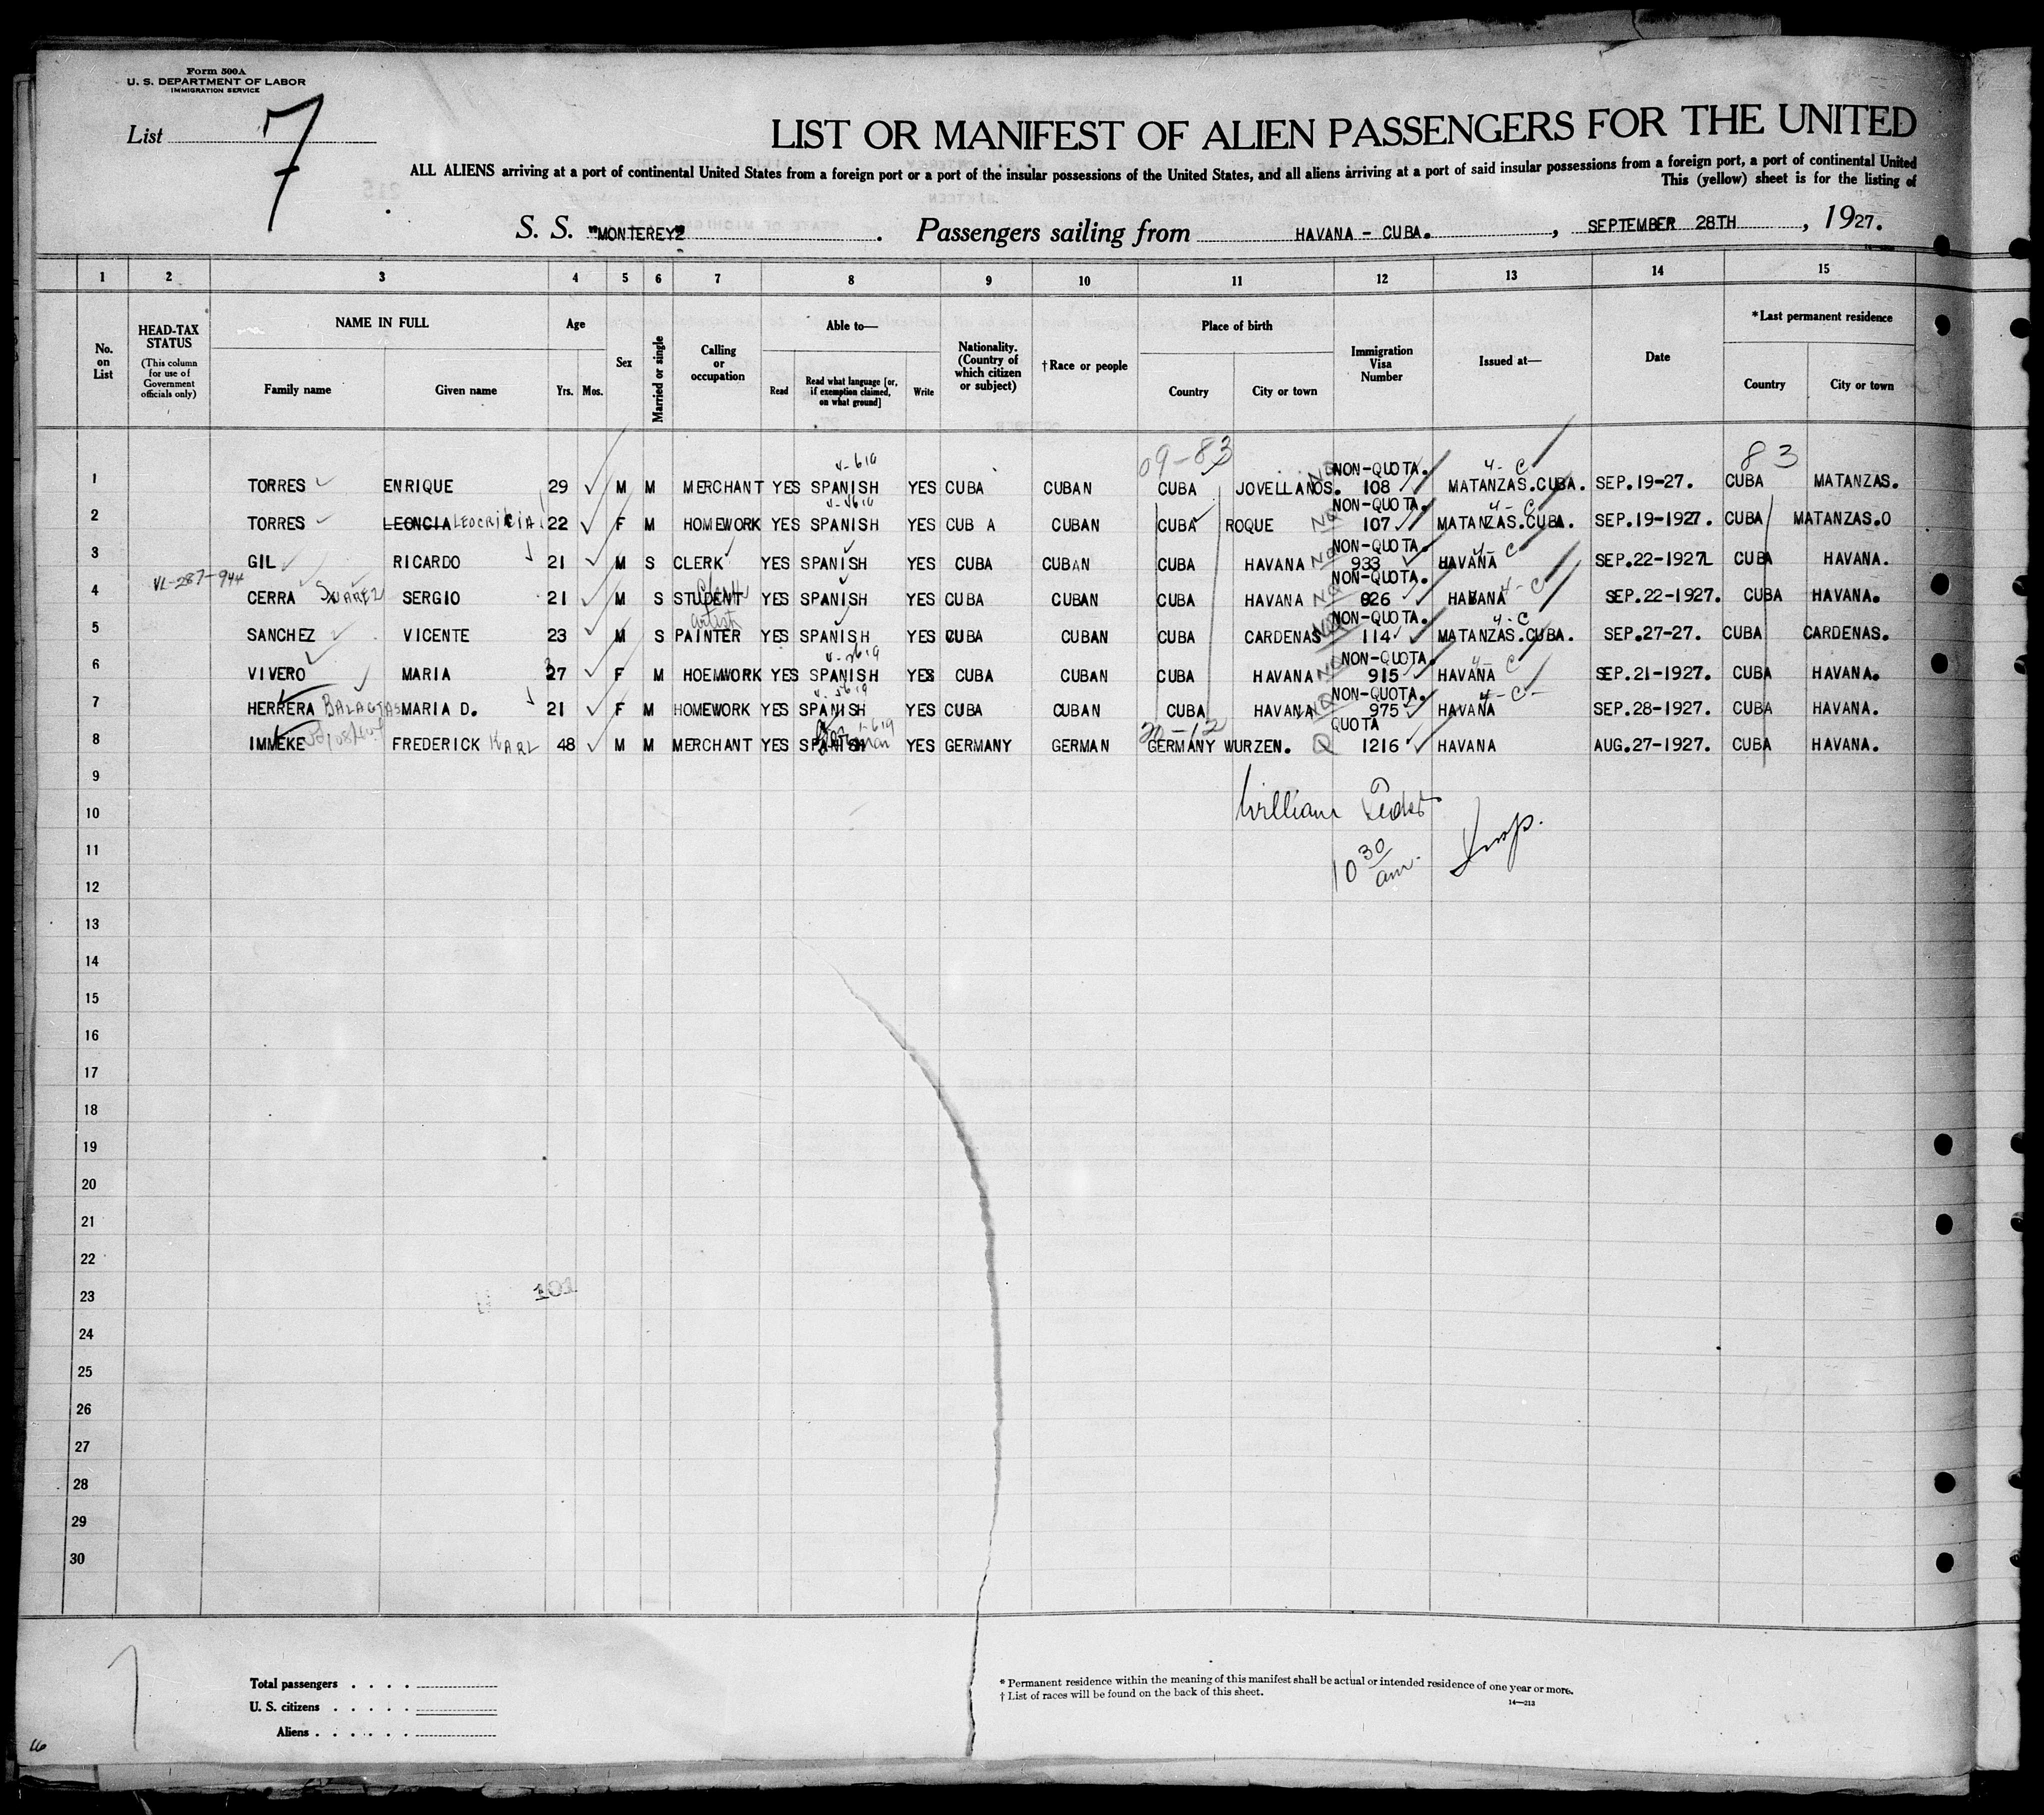 Form 500A
U. S. DEPARTMENT OF LABOR
IMMIGRATION SERVICE
List 7
LIST OR MANIFEST OF ALIEN PASSENGERS FOR THE UNITED
ALL ALIENS arriving at a port of continental United States from a foreign port or a port of the insular possessions of the United States, and all aliens arriving at a port of said insular possessions from a foreign port, a port of continental United
This (yellow) sheet is for the listing of
S. S. "MONTEREY" . Passengers sailing from HAVANA - CUBA. , SEPTEMBER 28TH , 1927.
1 2 3 4 5 6 7 8 9 10 11 12 13 14 15
No. on List
HEAD-TAX STATUS (This column for use of Government officials only)
NAME IN FULL Family name Given name
Age Yrs. Mos.
Sex
Married or single
Calling or occupation
Able to— Read Read what language [or, if exemption claimed, on what ground] Write
Nationality. (Country of which citizen or subject)
†Race or people
Place of birth Country City or town
Immigration Visa Number
Issued at—
Date
*Last permanent residence Country City or town
09-83 83
NON-QUOTA. 4-C
1 TORRES ENRIQUE 29 M M MERCHANT YES SPANISH YES CUBA CUBAN CUBA JOVELLANOS. 108 MATANZAS.CUBA. SEP.19-27. CUBA MATANZAS.
NON-QUOTA. 4-C
2 TORRES LEONCIA LEOCRICIA 22 F M HOMEWORK YES SPANISH YES CUB A CUBAN CUBA ROQUE 107 MATANZAS.CUBA. SEP.19-1927. CUBA MATANZAS.O
NON-QUOTA. 4-C
3 GIL RICARDO 21 M S CLERK YES SPANISH YES CUBA CUBAN CUBA HAVANA 933 HAVANA SEP.22-1927L CUBA HAVANA.
VL-287-944 NON-QUOTA. 4-C
4 CERRA SUAREZ SERGIO 21 M S STUDENT Clerk YES SPANISH YES CUBA CUBAN CUBA HAVANA 826 HABANA SEP.22-1927. CUBA HAVANA.
artist NON-QUOTA. 4-C
5 SANCHEZ VICENTE 23 M S PAINTER YES SPANISH YES CUBA CUBAN CUBA CARDENAS 114 MATANZAS.CUBA. SEP.27-27. CUBA CARDENAS.
NON-QUOTA. 4-C
6 VIVERO MARIA 27 F M HOEMWORK YES SPANISH YES CUBA CUBAN CUBA HAVANA 915 HAVANA SEP.21-1927. CUBA HAVANA.
NON-QUOTA. 4-C-
7 HERRERA MARIA D. 21 F M HOMEWORK YES SPANISH YES CUBA CUBAN CUBA HAVANA 975 HAVANA SEP.28-1927. CUBA HAVANA.
20-12 QUOTA
8 IMMEKE FREDERICK KARL 48 M M MERCHANT YES SPANISH German YES GERMANY GERMAN GERMANY WURZEN. Q 1216 HAVANA AUG.27-1927. CUBA HAVANA.
9
10 William
11 Insp.
12 10 30 am.
13
14
15
16
17
18
19
20
21
22
23
24
25
26
27
28
29
30
Total passengers . . . .
U. S. citizens . . . . .
Aliens . . . . . .
* Permanent residence within the meaning of this manifest shall be actual or intended residence of one year or more.
† List of races will be found on the back of this sheet.
14—213